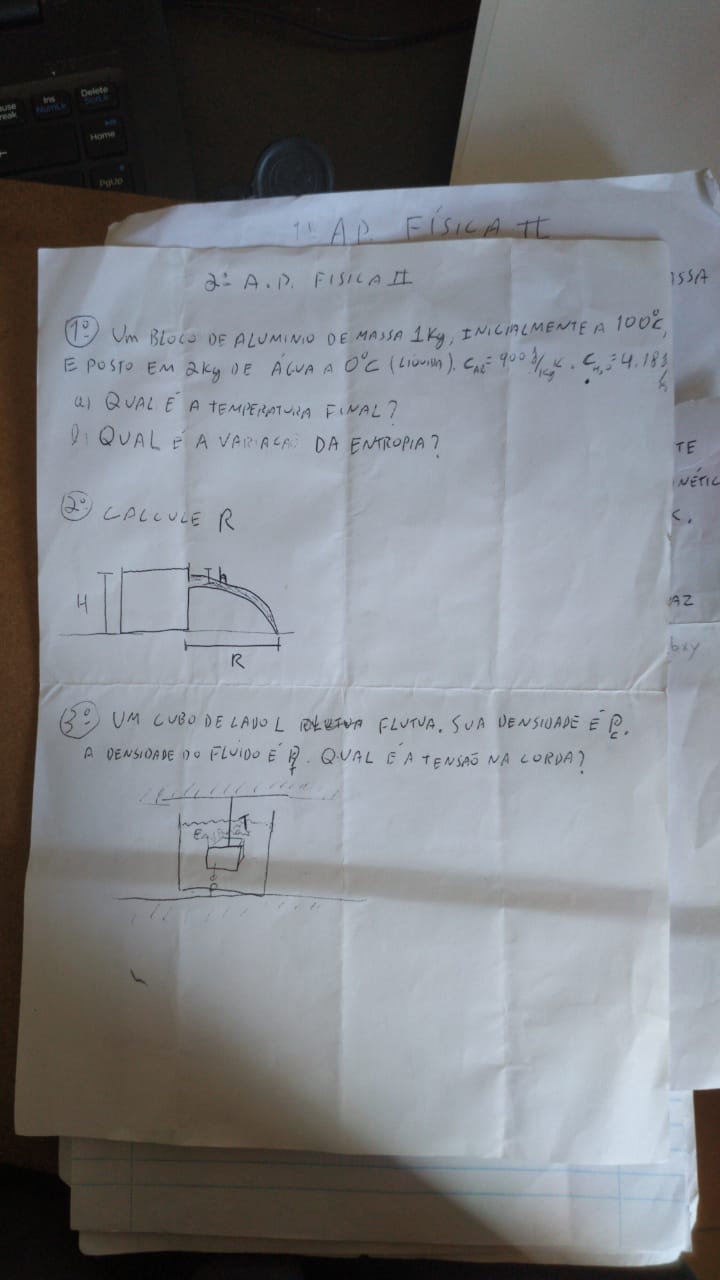 Ins
NumLk
Delete
ScrLk
Home
PgUp
1ª AP. FÍSICA II
2ª A.P. FISICA II
1º UM BLOCO DE ALUMINIO DE MASSA 1Kg, INICIALMENTE A 100°C,
E POSTO EM 2Kg DE ÁGUA A 0°C (LIQUIDA). CAl = 900 J/KgK. CH2O = 4.18J
a) QUAL É A TEMPERATURA FINAL?
b) QUAL É A VARIAÇAO DA ENTROPIA?
TE
K.
AZ
bxy
2º CALCULE R
H
h
R
3º UM CUBO DE LADO L FLUTUA. SUA DENSIDADE É ρc.
A DENSIDADE DO FLUÍDO É ρf. QUAL É A TENSÃO NA CORDA?
T